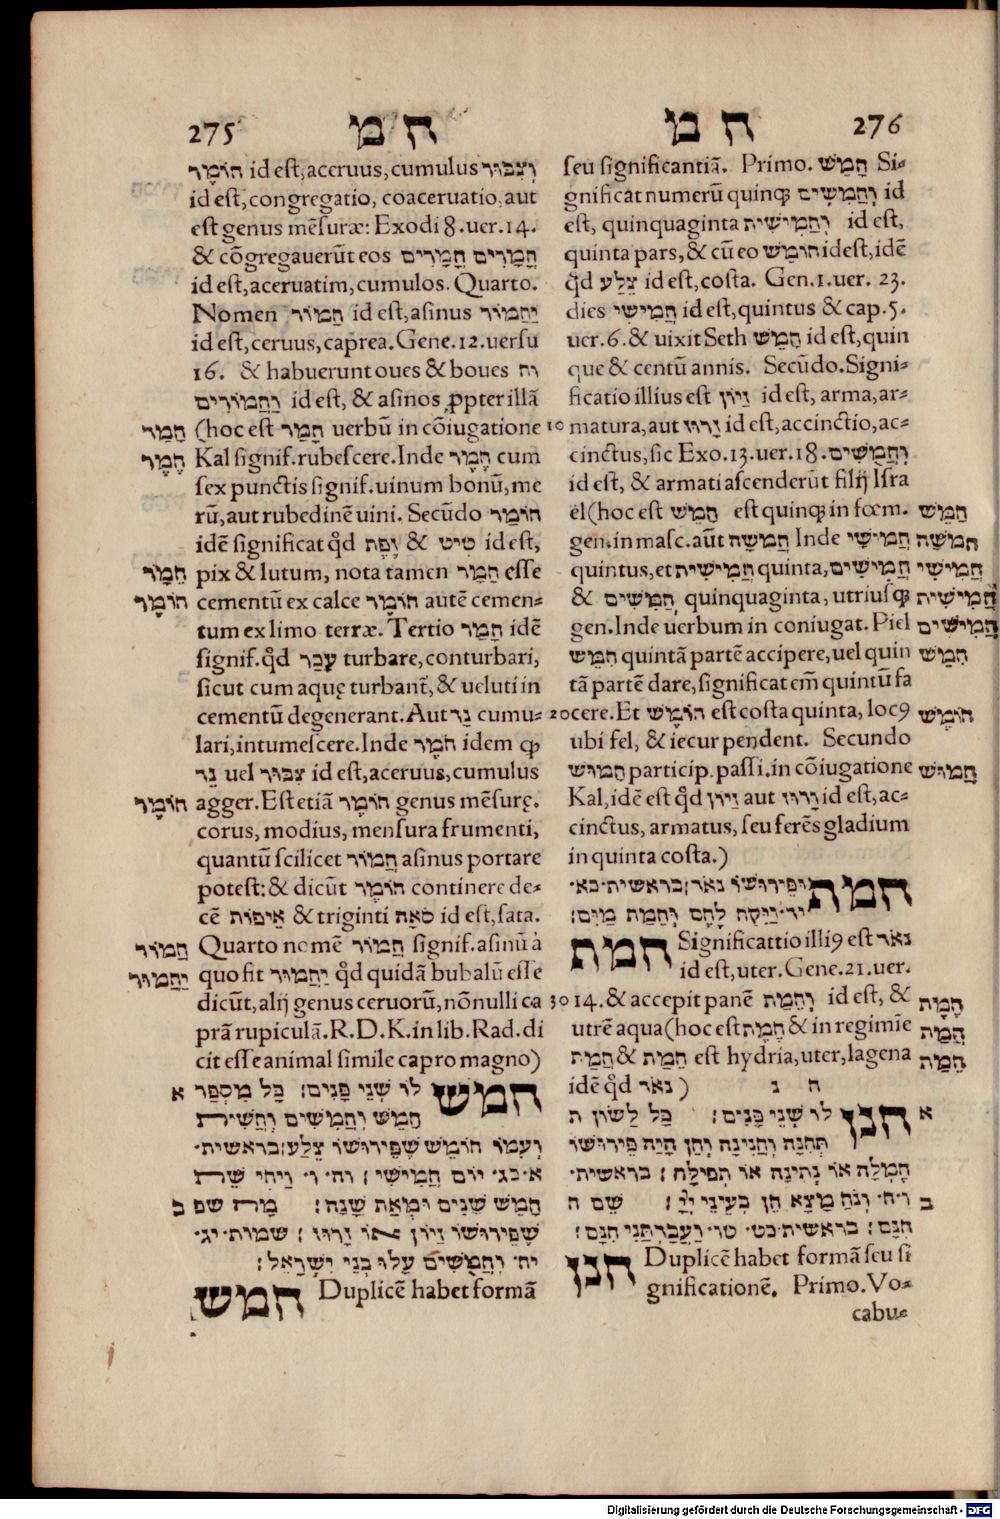 275 ח מ
חוֹמֶר וְצִבּוּר id est, aceruus, cumulus
id est, congregatio, coaceruatio, aut
est genus mẽsuræ: Exodi 8. uer. 14.
& cõgregauerũt eos חֳמָרִים חֳמָרִים
id est, aceruatim, cumulos. Quarto.
Nomen חֲמוֹר id est, asinus יַחְמוּר
id est, ceruus, caprea. Gene. 12. uersu
16. & habuerunt oues & boues וח
וַחֲמוֹרִים id est, & asinos ꝓpter illã
חָמַר (hoc est חָמַר uerbũ in cõiugatione
חֶמֶר Kal signif. rubescere. Inde חֶמֶר cum
sex punctis signif. uinum bonũ, me
rũ, aut rubedinẽ uini. Secũdo חוֹמַר
idẽ significat qđ זֶפֶת & טִיט id est,
חֵמָר pix & lutum, nota tamen חֵמָר esse
חוֹמֶר cementũ ex calce חוֹמֶר autẽ cemen-
tum ex limo terræ. Tertio חָמַר idẽ
signif. qđ עָכַר turbare, conturbari,
sicut cum aquę turbant̃, & ueluti in
cementũ degenerant. Aut גַּר cumu-
lari, intumescere. Inde חֹמֶר idem ꝙ
גֵּר uel צִבּוּר id est, aceruus, cumulus
חוֹמֶר agger. Est etiã חוֹמֶר genus mẽsurę.
corus, modius, mensura frumenti,
quantũ scilicet חֲמוֹר asinus portare
potest: & dicũt חוֹמֶר continere de-
cẽ אֵיפוֹת & triginti סְאָה id est, sata.
חֲמוֹר Quarto nomẽ חֲמוֹר signif. asinũ à
יַחְמוּר quo fit יַחְמוּר qđ quidã bubalũ esse
dicũt, alij genus ceruorũ, nõnulli ca
prã rupiculã. R. D. K. in lib. Rad. di
cit esse animal simile capro magno)
א חמש לו שְׁנֵי פָנִים׃ כָּל מִסְפַּר
חָמֵשׁ וַחֲמִשִּׁים וַחֲשִׁירִת
וְעִמוֹ חוֹמֶשׁ שֶׁפֵּירוּשׁוֹ צֵלָע׃ בראשית·
א·כג· יוֹם חֲמִישִׁי׃ וה· ו· וַיְחִי שֵׁת
ב חָמֵשׁ שָׁנִים וּמְאַת שָׁנָה׃ מָרח שפ
שֶׁפֵּירוּשׁוֹ זַיִון או זֵרוּז׃ שמות·יג·
יח· וַחֲמֻשִׁים עָלוּ בְנֵי יִשְׂרָאֵל׃
חמש Duplicẽ habet formã
ח מ 276
seu significantiã. Primo. חָמֵשׁ Si-
gnificat numerũ quinqꝫ וַחֲמִשִּׁים id
est, quinquaginta וַחֲמִישִׁית id est,
quinta pars, & cũ eo חוֹמֶשׁ id est, idẽ
qđ צֵלָע id est, costa. Gen. 1. uer. 23.
dies חֲמִישִׁי id est, quintus & cap. 5.
uer. 6. & uixit Seth חָמֵשׁ id est, quin
que & centũ annis. Secũdo. Signi-
ficatio illius est זַיִון id est, arma, ar-
10 matura, aut זֵרוּז id est, accinctio, ac-
cinctus, sic Exo. 13. uer. 18. וַחֲמֻשִׁים
id est, & armati ascenderũt filij Isra
el (hoc est חָמֵשׁ est quinqꝫ in fœm. חָמֵשׁ
gen. in masc. aũt חֲמִשָּׁה Inde חֲמִישִׁי חֲמִשָּׁה
quintus, et חֲמִישִׁית quinta, חֲמִישִׁים חֲמִישִׁי
& חֲמִשִּׁים quinquaginta, utriusqꝫ חֲמִישִׁית
gen. Inde uerbum in coniugat. Piel חֲמִישִׁים
חִמֵּשׁ quintã partẽ accipere, uel quin חִמֵּשׁ
tã partẽ dare, significat em̃ quintũ fa
20 cere. Et חוֹמֶשׁ est costa quinta, locꝰ חוֹמֶשׁ
ubi fel, & iecur pendent. Secundo
חָמוּשׁ particip. passi. in cõiugatione חָמוּשׁ
Kal, idẽ est qđ זַיִון aut זֵרוּז id est, ac-
cinctus, armatus, seu ferẽs gladium
in quinta costa.)
חמת וּפֵירוּשׁוֹ נֹאר׃ בראשית·כא·
יד· וַיִּקַּח לֶחֶם וְחֵמַת מַיִם׃
חמת Significattio illiꝰ est נֹאר
id est, uter. Gene. 21. uer.
30 14. & accepit panẽ וְחֵמַת id est, & חֵמֶת
utrẽ aqua (hoc est חֵמֶת & in regimĩe חֵמַת
חֵמַת & חֵמֶת est hydria, uter, lagena חֵמַת
idẽ qđ נֹאר )
ח נ
חנן לו שְׁנֵי פָּנִים׃ כָּל לְשׁוֹן ת א
תְּחִנָּה וַחֲנִינָה וְחֵן הָיָה פֵּירוּשׁוֹ
חֶמְלָה או נְתִינָה או תְּפִילָה׃ בראשית·
ו·ח· וְנֹחַ מָצָא חֵן בְּעֵינֵי יְיָ׃ שֵׁם ה ב
חִנָּם׃ בראשית·כט· טו· וַעֲבַדְתַּנִי חִנָּם׃
חנן Duplicẽ habet formã seu si
gnificationẽ. Primo. Vo-
cabu-
Digitalisierung gefördert durch die Deutsche Forschungsgemeinschaft - DFG